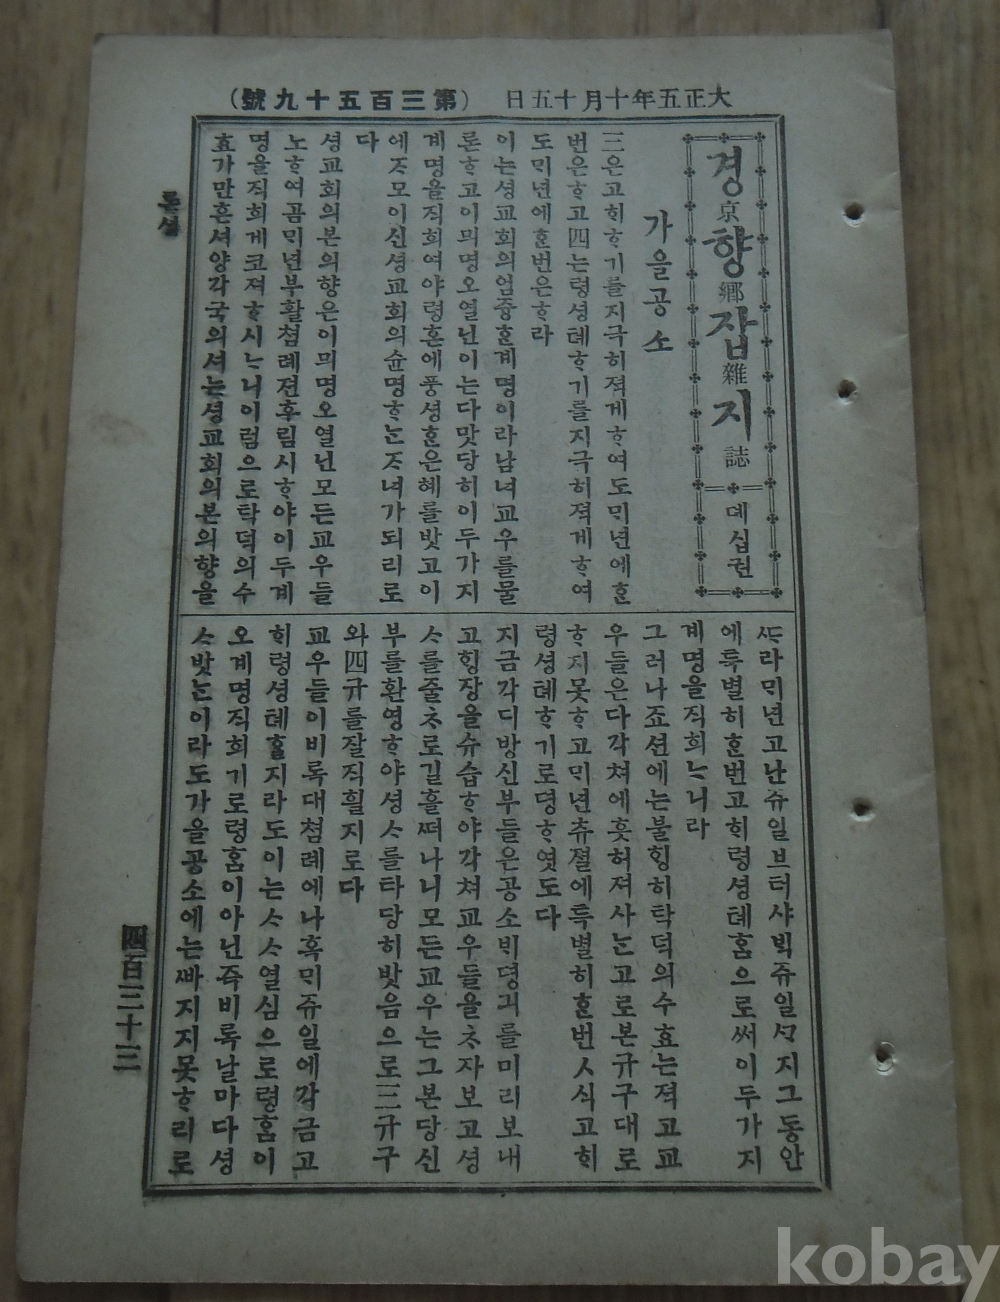 大正五年十月十五日 (第三百五十九號)
경京향鄕잡雜지誌 뎨십권
가을공소
三은고ᄒᆡᄒᆞ기를지극히젹게ᄒᆞ여도ᄆᆡ년에ᄒᆞᆫ
번은ᄒᆞ고四는령셩톄ᄒᆞ기를지극히젹게ᄒᆞ여
도ᄆᆡ년에ᄒᆞᆫ번은ᄒᆞ라
이는셩교회의엄즁ᄒᆞᆫ계명이라남녀교우를물
론ᄒᆞ고이믜명오열닌이는다맛당히이두가지
계명을직희여야령혼에풍셩ᄒᆞᆫ은혜를밧고이
에ᄌᆞ모이신셩교회의슌명ᄒᆞᄂᆞᆫᄌᆞ녀가되리로
다
셩교회의본의향은이믜명오열닌모든교우들
노ᄒᆞ여곰ᄆᆡ년부활쳠례젼후림시ᄒᆞ야이두계
명을직희게코져ᄒᆞ시ᄂᆞ니이럼으로탁덕의수
효가만흔셔양각국의셔는셩교회의본의향을
ᄯᆞ라ᄆᆡ년고난쥬일브터샤ᄇᆡᆨ쥬일ᄭᆞ지그동안
에특별히ᄒᆞᆫ번고ᄒᆡ령셩톄홈으로써이두가지
계명을직희ᄂᆞ니라
그러나죠션에는불ᄒᆡᆼ히탁덕의수효는젹고교
우들은다각쳐에흣허져사ᄂᆞᆫ고로본규구대로
ᄒᆞ지못ᄒᆞ고ᄆᆡ년츄졀에특별히ᄒᆞᆫ번ᄉᆞ식고ᄒᆡ
령셩톄ᄒᆞ기로뎡ᄒᆞ엿도다
지금각디방신부들은공소ᄇᆡ뎡긔를미리보내
고ᄒᆡᆼ장을슈습ᄒᆞ야각쳐교우들을ᄎᆞ자보고셩
ᄉᆞ를줄ᄎᆞ로길흘ᄯᅥ나니모든교우는그본당신
부를환영ᄒᆞ야셩ᄉᆞ를타당히밧음으로三규구
와四규를잘직흴지로다
교우들이비록대쳠례에나혹ᄆᆡ쥬일에각금고
ᄒᆡ령셩톄ᄒᆞᆯ지라도이는ᄉᆞᄉᆞ열심으로령홈이
오계명직희기로령홈이아닌즉비록날마다셩
ᄉᆞ밧ᄂᆞᆫ이라도가을공소에는ᄲᅡ지지못ᄒᆞ리로
론셜
四百三十三
kobay